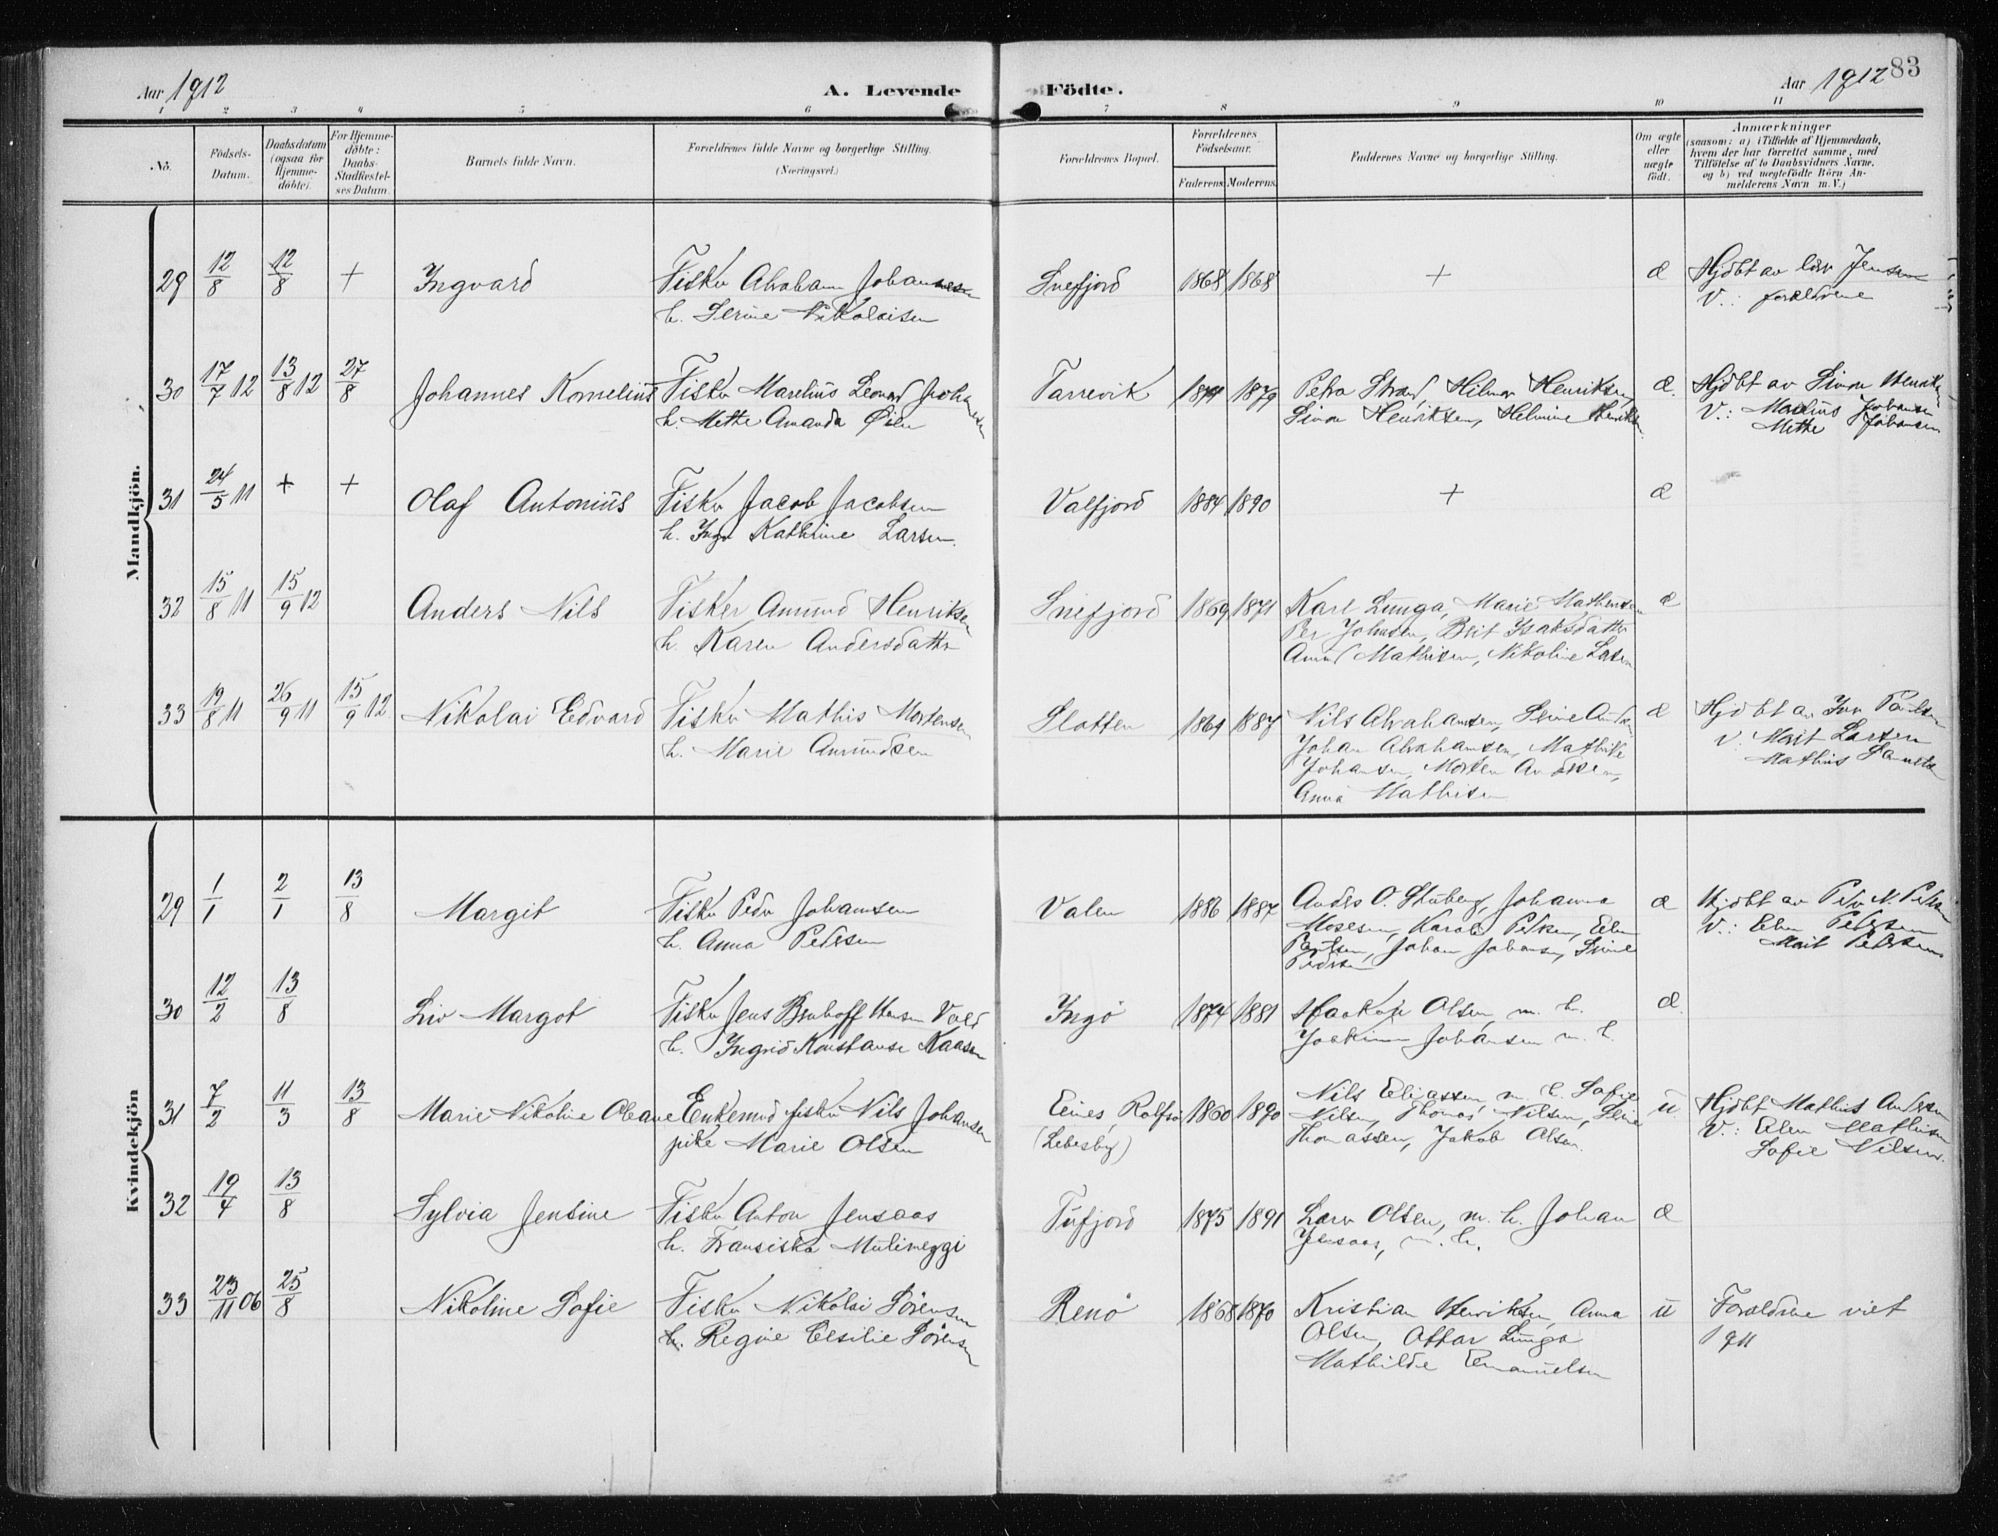 83
Aar 1912
A. Levende
Födte.
Aar 1912
1 2 3 4 5 6 7 8 9 10 11
No.
Födsels-
Datum.
Daabsdatum
(ogsaa for
Hjemme-
döbte).
For Hjemme-
döbte:
Daabs-
Stadfæstel-
ses Datum.
Barnets fulde Navn.
Forældrenes fulde Navne og borgerlige Stilling.
(Næringsvei.)
Forældrenes Bopæl.
Forældrenes
Födselsaar.
Faderens. Moderens.
Faddernes Navne og borgerlige Stilling.
Om ægte
eller
uægte
födt.
Anmærkninger
(saasom: a) i Tilfælde af Hjemmedaab,
hvem der har forrettet samme, med
Tilföielse af to Daabsvidners Navne,
og b) ved uægtefödte Börn An-
melderens Navn m. V.)
Mandkjön.
29 12/8 12/8 + Ingvard Fisker Abraham Johannesen Snefjord 1868 1868 + æ Hjdbt av Jensen
h. Serine Nikolaisen V.: forældrene
30 17/7 12 13/8 12 27/8 Johannes Kornelius Fisker Marelius Leonard Johansen Tarrevik 1879 Petra Strand, Hilmar Henriksen æ. Hjdbt av Simon Henriksen
h. Mette Amanda Öien Simon Henriksen, Helmine Henriksen V.: Marelius Johansen
Mette Johansen
31 24/5 11 + + Olaf Antonius Fisker Jacob Jacobsen Valfjord 1884 1890 + æ
h. Inga Kathrine Larsen.
32 15/8 11 15/9 12 Anders Nils Fisker Amund Henriksen Snefjord 1869 1871 Karl Lunga, Marie Mathisen æ
h. Karen Andersdatter Per Johnsen, Brit Isaksdatter
Amund Mathisen, Nikoline Larsen
33 19/8 11 26/9 11 15/9 12 Nikolai Edvard Fisker Mathis Mortensen Slotten 1864 1887 Nils Abrahamsen, æ Hjdbt av Iver
h. Marie Amundsen Johan Abrahamsen, Mathike V.: Marit Larsen
Johansen, Morten Andersen, Mathis
Anna Mathisen
Kvindekjön
29 1/1 2/1 13/8 Margit Fisker Peder Johansen Valen 1886 1887 Anders O. Stuberg, Johanna æ Hjdbt av Peder N. Pedersen
h. Anna Pedersen Mosesen, Karoline Pedersen, Elen V.: Elen Pedersen
Johan Johansen, Marit Pedersen
Pedersen
30 12/2 13/8 Liv Margot Fisker Jens Hansen Vold Ingö 1874 1881 Haakon Olsen, m. h. æ.
h. Ingrid Konstanse Kaasen Joakim Johansen m. h.
31 7/2 11/3 13/8 Marie Nikoline Oleane Enkemand fisker Nils Johansen Eines, Rolfsö 1860 1890 Nils Eliassen m. h. Sofie u Hjdbt Mathis Andersen
pike Marie Olsen (Lebesby) Nilsen, Thomas Nilsen, V.: Elen Mathisen
Thomassen, Jakob Olsen. Sofie Nilsen.
32 19/4 13/8 Sylvia Jensine Fisker Anton Jensaas Tufjord 1875 1891 Lars Olsen, m. h. Johan æ
h. Fransiska Mulineggi Jensaas, m. h.
33 23/11 06 25/8 Nikoline Sofie Fisker Nikolai Sörensen Renö 1868 1870 Kristian Henriksen, Anna u Forældrene viet
h. Regine Cesilie Sörensen Olsen, Ottar Lunga 1911
Mathilde Emanuelsen